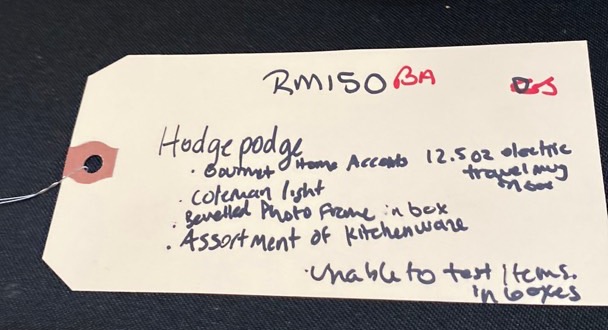 RM150 BA
Hodge podge
· Gourmet Home Accents 12.5 oz electric
travel mug
in box
· Coleman light
· Bevelled Photo Frame in box
· Assortment of Kitchenware
· Unable to test Items.
in boxes